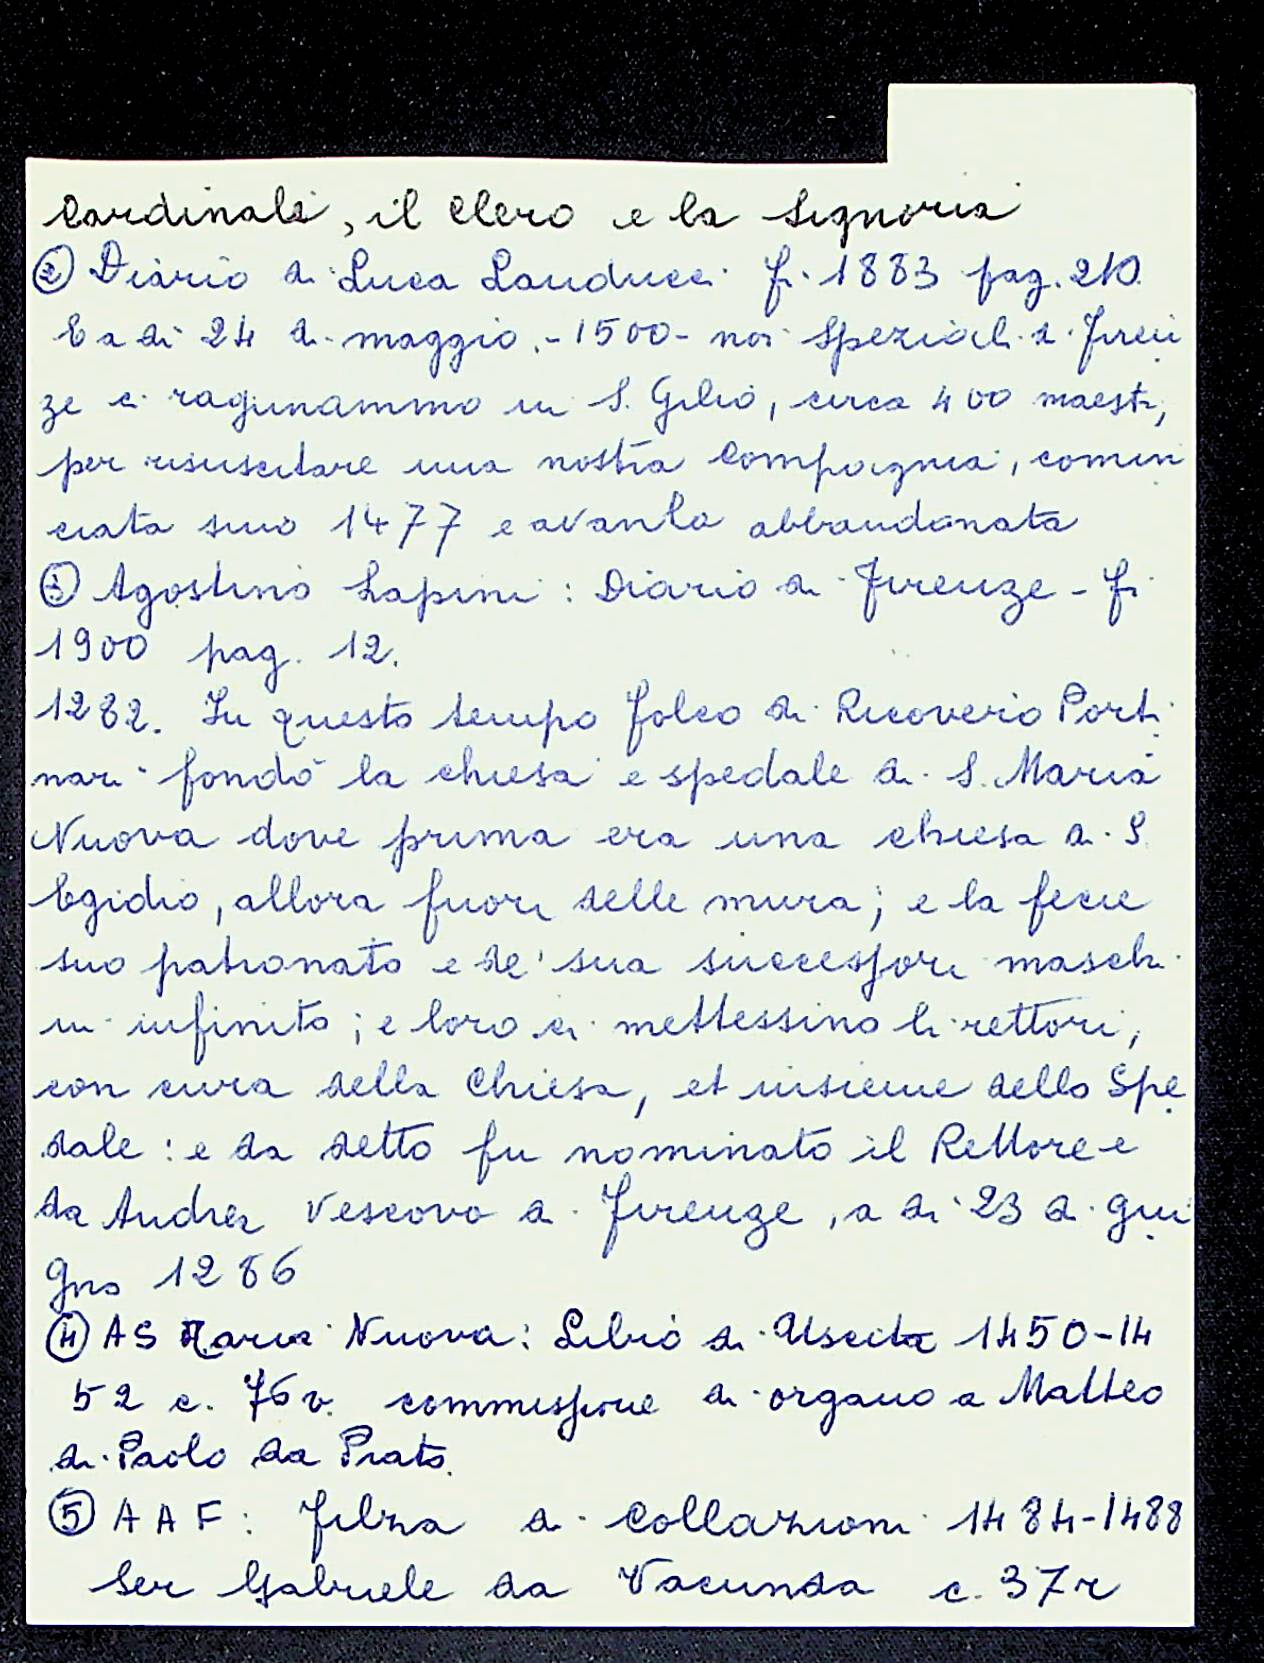 Cardinali, il Clero e la Signoria
② Diario di Luca Landucci fi. 1883 pag. 210
E a dì 24 di maggio - 1500 - noi speziali di Firen
ze ci ragunammo in S. Gilio, circa 400 maestri,
per risuscitare una nostra Compagnia, comin
ciata sino 1477 e avanlo abbandonata
③ Agostino Lapini: Diario di Firenze - fi
1900 pag. 12.
1282. In questo tempo Folco di Ricovero Porti
nari fondò la chiesa e spedale di S. Maria
Nuova dove prima era una chiesa di S.
Egidio, allora fuori delle mura; e la fecie
suo patronato e de' sua successori maschi
in infinito; e loro ci mettessino li rettori,
con cura della Chiesa, et insieme dello Spe
dale: e da detto fu nominato il Rettore e
da Andrea Vescovo di Firenze, a dì 23 di giu
gno 1286
④ AS Maria Nuova: Libro di Uscita 1450-14
52 c. 76 v. commissione di organo a Matteo
di Paolo da Prato.
⑤ AAF: Filza di Collazioni 1484-1488
Ser Gabriele da Vacunda c. 37 r